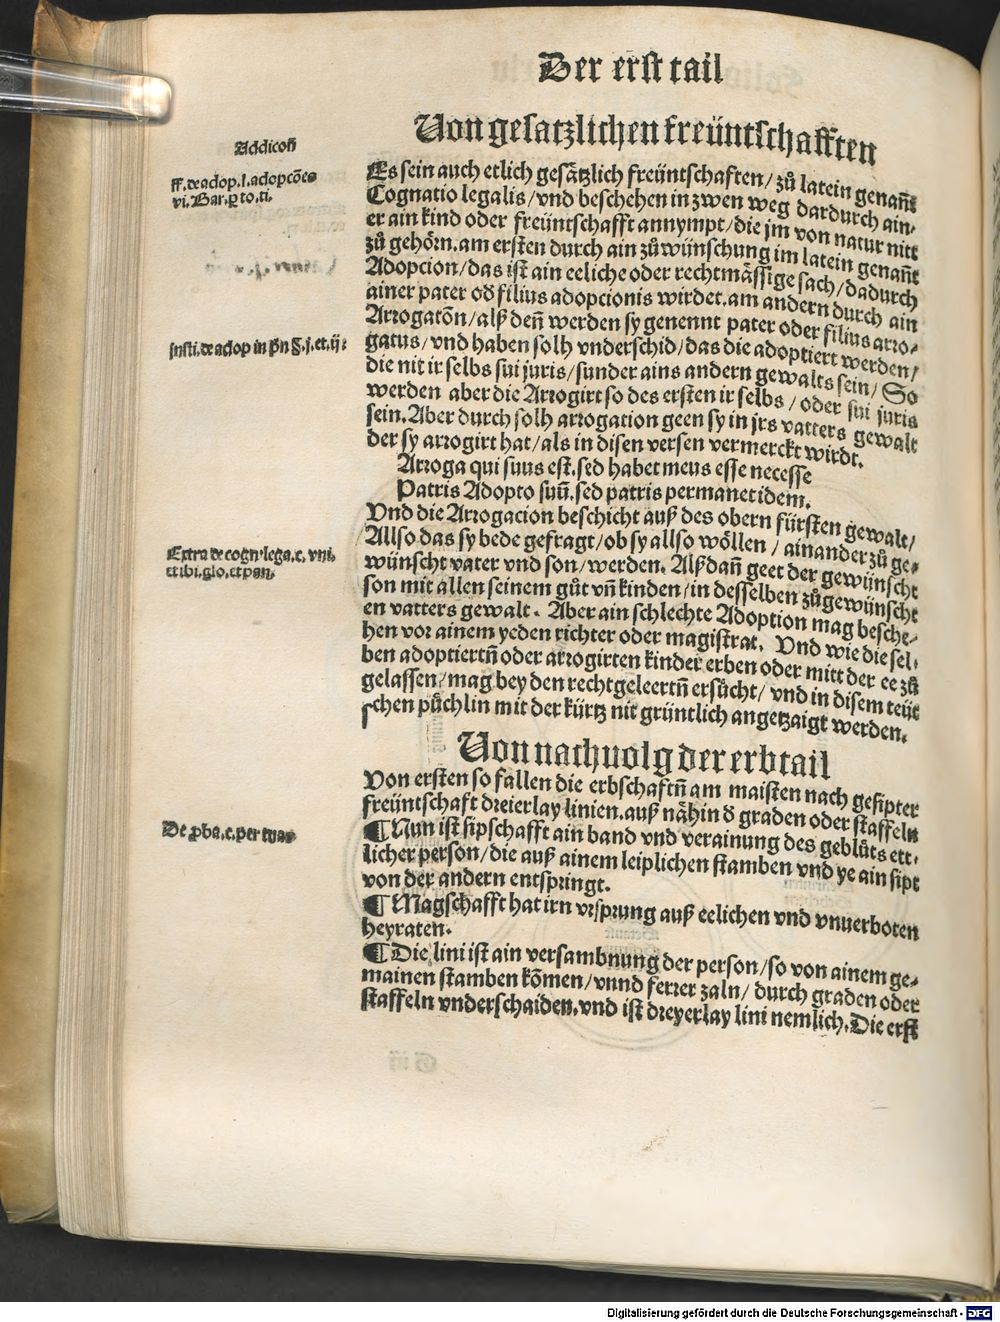 Der erst tail
Von gesatzlichen freüntschafften
Addicoñ
ff. de adop. l. adopcões
vi. Bar. p to. ti.
Es sein auch etlich gesätzlich freüntschaften/ zů latein genañt
Cognatio legalis/ vnd beschehen in zwen weg dardurch ain-
er ain kind oder freüntschafft annympt/ die jm von natur nitt
zů gehörn. am ersten durch ain zůwünschung im latein genañt
Adopcion/ das ist ain eeliche oder rechtmässige sach/ dadurch
ainer pater od filius adopcionis wirdet. am andern durch ain
Arrogatōn/ alß deñ werden sy genennt pater oder filius arro-
Insti. de adop in pn §. j. et. ij:
gatus/ vnd haben solh vnderschid/ das die adoptiert werden/
die nit ir selbs sui juris/ sunder ains andern gewalts sein/ So
werden aber die Arrogirt so des ersten ir selbs/ oder sui juris
sein. Aber durch solh arrogation geen sy in jrs vatters gewalt
der sy arrogirt hat/ als in disen versen vermerckt wirdt.
Arroga qui suus est. sed habet meus esse necesse
Patris Adopto suū. sed patris permanet idem.
Vnd die Arrogacion beschicht auß des obern fürsten gewalt/
Allso das sy bede gefragt/ ob sy allso wöllen/ ainander zů ge-
Extra de cogn. lega. c. vni.
et ibi. glo. et pan.
wünscht vater vnd son/ werden. Alß dañ geet der gewünscht
son mit allen seinem gůt vñ kinden/ in desselben zůgewünscht
en vatters gewalt. Aber ain schlechte Adoption mag besche-
hen vor ainem yeden richter oder magistrat. Vnd wie die sel-
ben adoptiertñ oder arrogirten kinder erben oder mitt der ee zů
gelassen/ mag bey den rechtgeleertñ ersůcht/ vnd in disem teüt
schen půchlin mit der kürtz nit grüntlich angetzaigt werden.
Von nachuolg der erbtail
Von ersten so fallen die erbschaftñ am maisten nach gesipter
freüntschaft dreierlay linien. auß nähin d graden oder staffeln
De pba. c. per tuas
¶ Nun ist sipschafft ain band vnd verainung des geblůts ett-
licher person/ die auß ainem leiplichen stamben vnd ye ain sipt
von der andern entspringt.
¶ Magschafft hat irn vrsprung auß eelichen vnd vnuerboten
heyraten.
¶ Die lini ist ain versambnung der person/ so von ainem ge-
mainen stamben kōmen/ vnnd ferrer zaln/ durch graden oder
staffeln vnderschaiden. vnd ist dreyerlay lini nemlich. Die erst
Digitalisierung gefördert durch die Deutsche Forschungsgemeinschaft - DFG